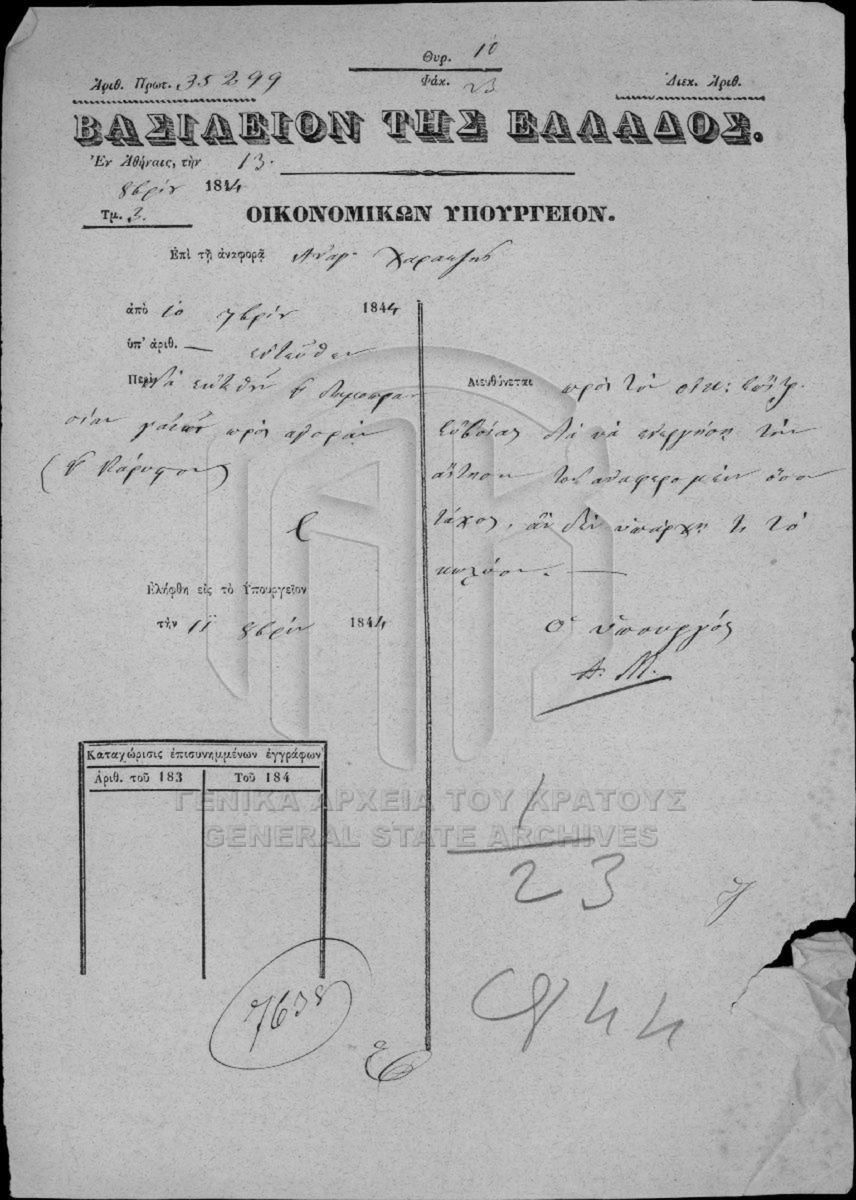 Θυρ. 10
Ἀριθ. Πρωτ. 35299
Φάκ. 23
Διεκ. Ἀριθ.
ΒΑΣΙΛΕΙΟΝ ΤΗΣ ΕΛΛΑΔΟΣ.
Ἐν Ἀθήναις, τὴν 13.
8βρίου 1844
Τμ. 2.
ΟΙΚΟΝΟΜΙΚΩΝ ΥΠΟΥΡΓΕΙΟΝ.
Ἐπὶ τῇ ἀναφορᾷ
ἀπὸ 10 7βρίου 1844
ὑπ' ἀριθ. — ἐντεῦθεν
Περὶ
πρὸς ἀγορὰν
Ἐλήφθη εἰς τὸ Ὑπουργεῖον
τὴν 11 8βρίου 1844
Διευθύνεται πρὸς τὸν οἰκ:
Εὐβοίας διὰ νὰ ἐνεργήσῃ τὴν
αἴτησιν τοῦ ἀναφερομένου ὅσον
τάχος, ἂν δὲν ὑπάρχῃ τι τὸ
κωλύον. —
Ὁ Ὑπουργός
Α. Μ.
Καταχώρισις ἐπισυνημμένων ἐγγράφων
Ἀριθ. τοῦ 183
Τοῦ 184
ΓΕΝΙΚΑ ΑΡΧΕΙΑ ΤΟΥ ΚΡΑΤΟΥΣ
GENERAL STATE ARCHIVES
1
23
44
7638